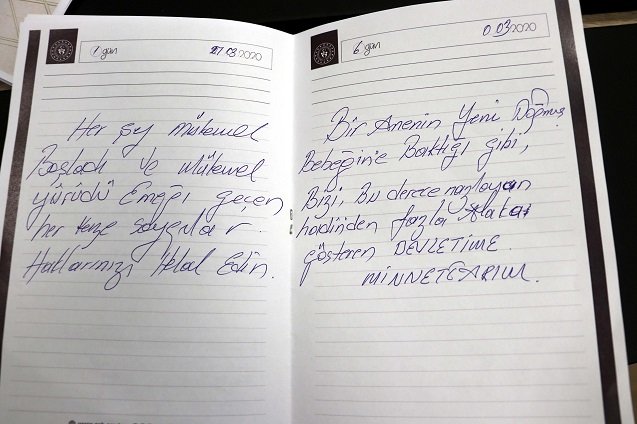 1 gün 27 03 2020
Her şey mükemel
Başladı ve mükemel
yürüdü Emeği geçen
her kese saygılar.
Haklarınızı Helal Edin.
6 gün 0 03 2020
Bir Anenin Yeni Doğmuş
Bebeğine Baktığı gibi,
Bizi, Bu derece nazlayan
haddinden fazla Alaka
gösteren DEVLETİME
MİNNETTARIM.